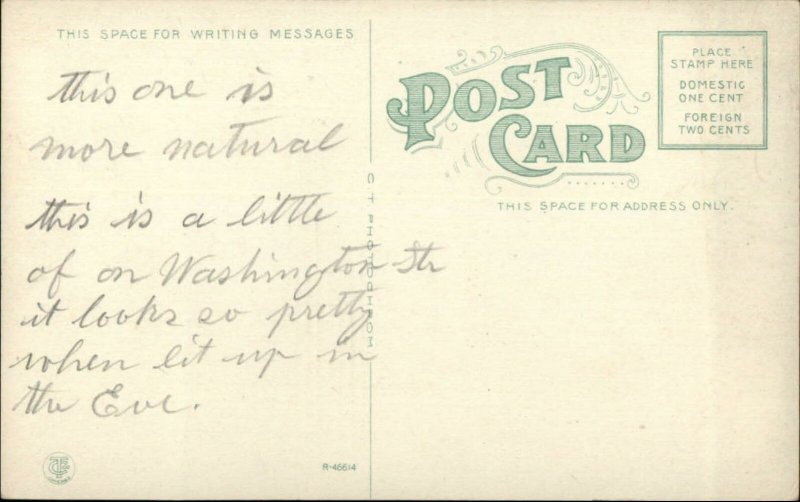 THIS SPACE FOR WRITING MESSAGES
this one is
more natural
this is a little
of on Washington Str
it looks so pretty
when lit up in
the Eve.
R-46614
C T PHOTOCHROM
POST
CARD
THIS SPACE FOR ADDRESS ONLY.
PLACE
STAMP HERE
DOMESTIC
ONE CENT
FOREIGN
TWO CENTS